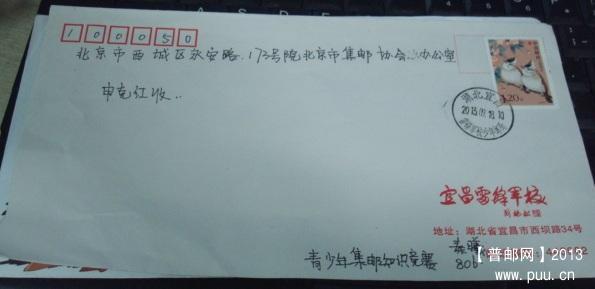 100050
北京市西城区永安路173号院北京市集邮协会办公室
1.20元
湖北宜昌
2013.09.18.10
申友红收
宜昌雷锋军校
地址：湖北省宜昌市西坝路34号
青少年集邮知识竞赛
806
【普邮网】2013
www.puu.cn